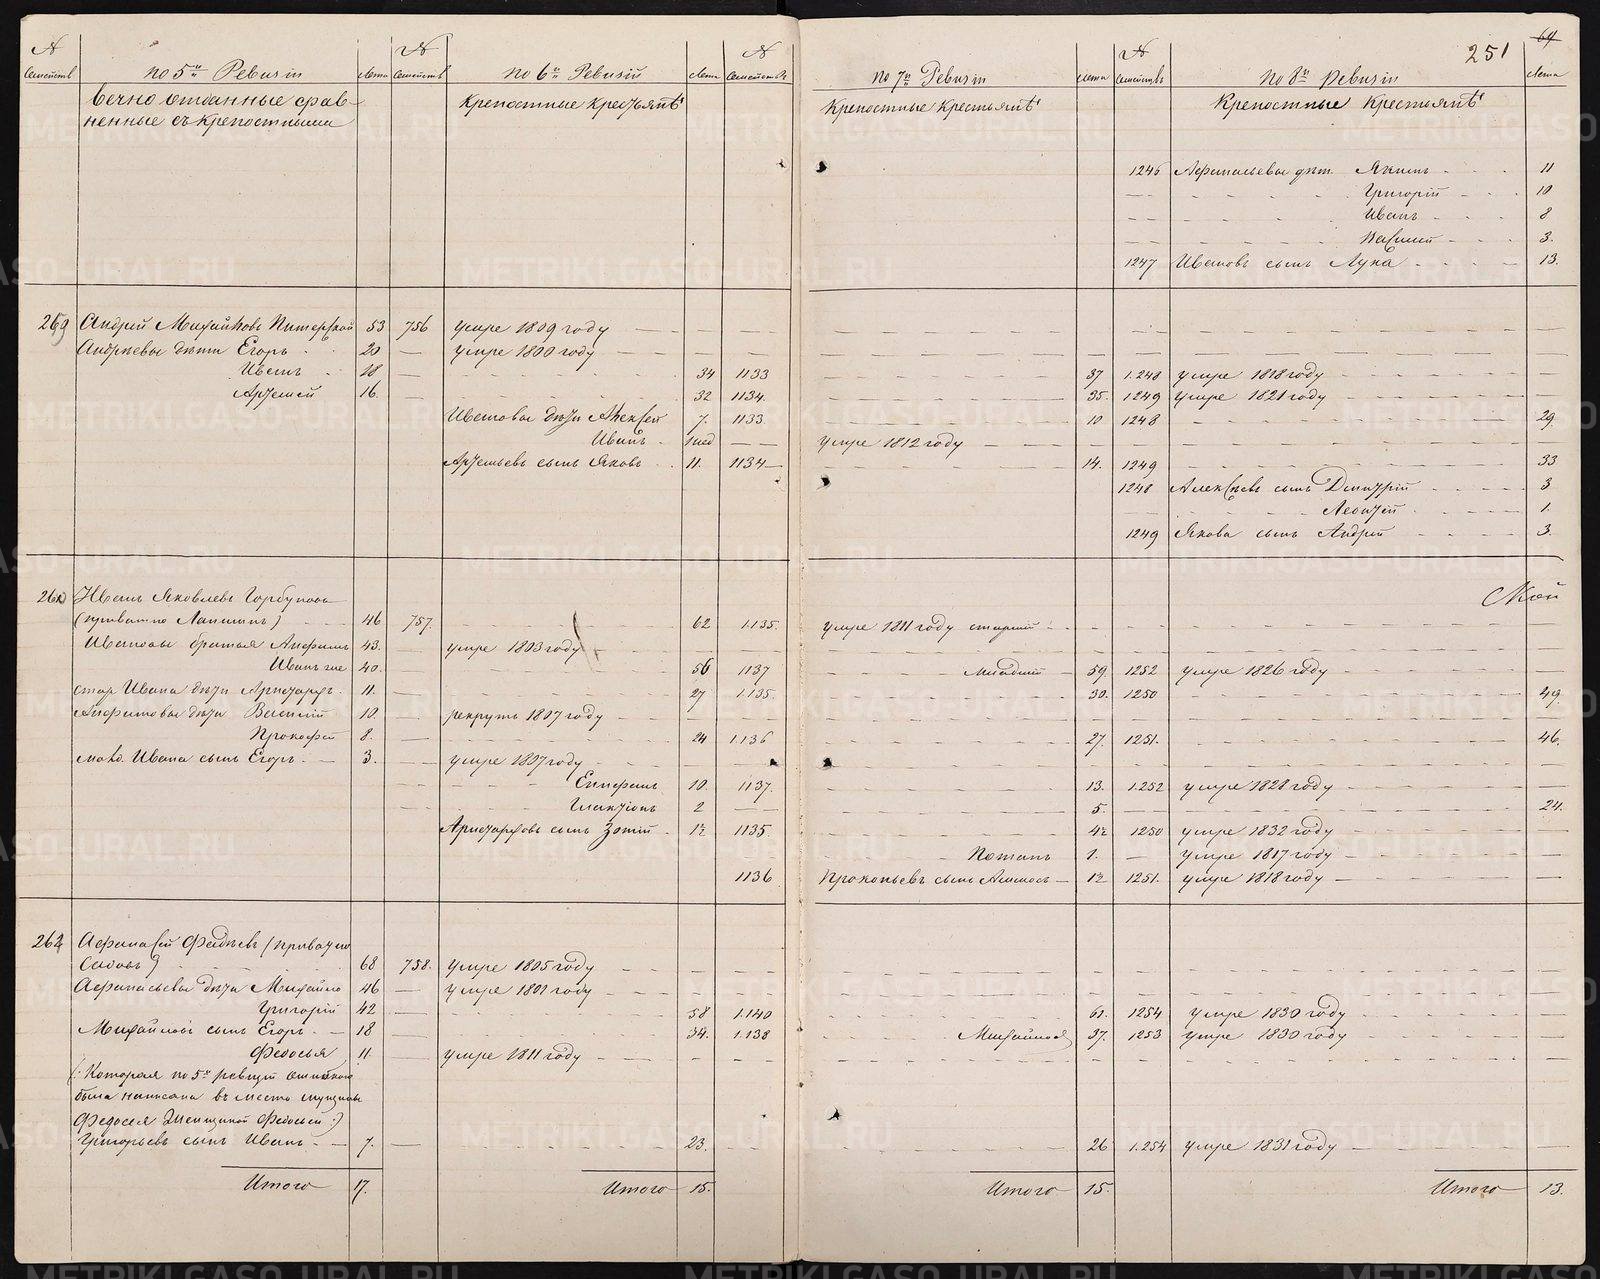 251
64
№ Семействъ
по 5й Ревизіи
лета
№ Семействъ
по 6й Ревизіи
лета
№ Семейств
по 7й Ревизіи
лета
№ Семейцвъ
по 8й Ревизіи
лета
вечно отданные срав-
ненные съ крепостными
Крепостные Крестьянѣ
Крепостные Крестьянѣ
Крепостные Крестьянѣ
1246 Афанасьевы дѣт. Якимъ 11
Григорій 10
Иванъ 8
Василий 3.
1247 Ивановъ сынъ Лука 13.
259 Андрей Михайловъ 53 756 умре 1809 году
Андреевы дѣти Егоръ 20 умре 1800 году
Иванъ 18 34 1133 37 1.248 умре 1818 году
Артемій 16. 32 1134. 35. 1249 умре 1821 году
Ивановы дѣти Алексей 7. 1133 10 1248 29.
Иванъ 1нед умре 1812 году
Артемьевъ сынъ Яковъ 11. 1134 14. 1249 33
1248 Алексѣевъ сынъ Дмитрій 3
Леонтій 1.
1249 Якова сынъ Андрей 3.
260 Иванъ Яковлевъ Горбуновъ
(приватно Лапшинъ) 46 757. 62 1.135. умре 1811 году старшій
Ивановы братья Анфимъ 43. умре 1803 году
Иванъ же 40. 56 1137 младшій 59. 1252 умре 1826 году
стар. Ивана дѣти Аристархъ. 11. 27 1.135. 30. 1250 49.
Анфимовы дѣти Василій 10. рекрутъ 1807 году
Прокофей 8. 24 1.136 27. 1251. 46.
мало. Ивана сынъ Егоръ. 3. умре 1807 году
Епифанъ 10. 1137. 13. 1.252 умре 1828 году
Галактіонъ 2 5. 24.
Аристарховъ сынъ Зотій 1½ 1135. 4½ 1250 умре 1832 году
Потапъ 1. умре 1817 году
1136 Прокопьевъ сынъ 1½ 1251. умре 1818 году
Афанасей Фадѣевъ (приватно
68 758. умре 1805 году
Афанасьевы дѣти Михайло 46 умре 1801 году
Григорій 42 58 1.140 61. 1254 умре 1830 году
Михайловъ сынъ Егоръ. 18 34. 1.138 Михайловъ 37. 1253 умре 1830 году
Федосья 11. умре 1811 году
(: Которая по 5й ревизіи ошибкою
была написана въ место мущины
Федосея Женщиной Федосьей :)
Григорьевъ сынъ Иванъ. 7. 23. 26 1.254 умре 1831 году
Итого 17. Итого 15. Итого 15. Итого 13.
METRIKI.GASO-URAL.RU